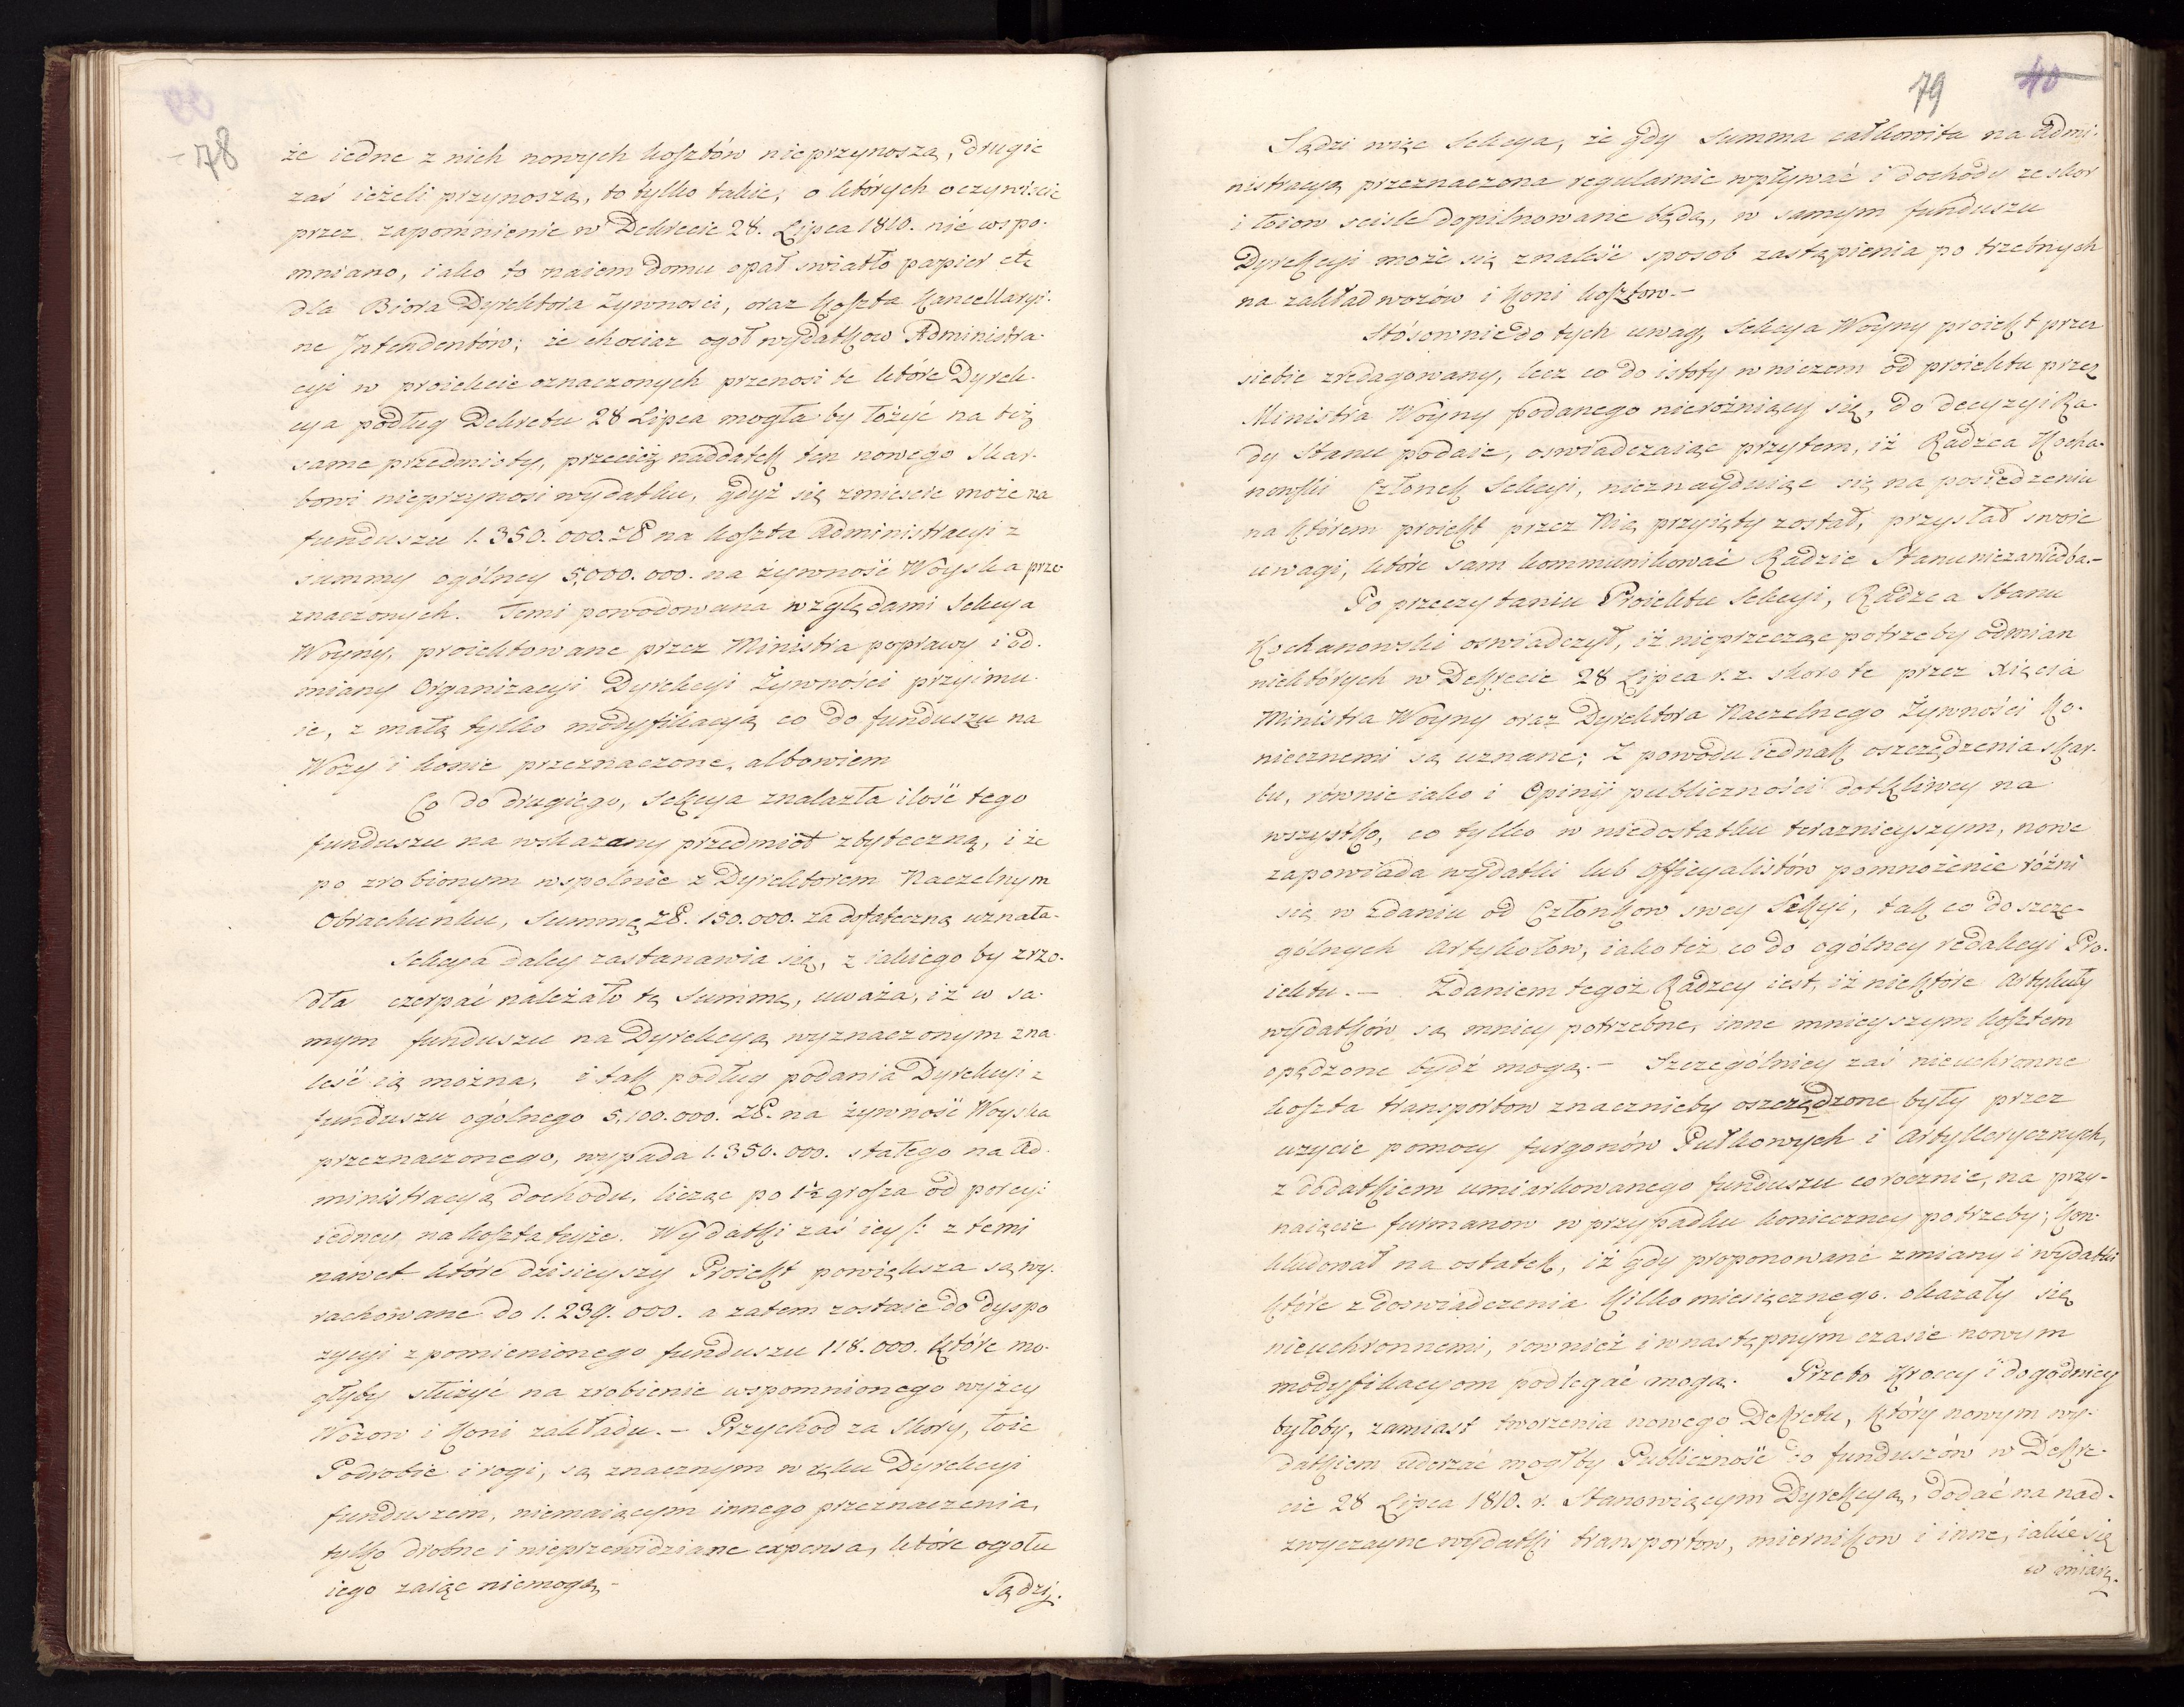 78
że iedne z nich nowych kosztów nieprzynoszą, drugie
zaś ieżeli przynoszą, to tylko takie, o których oczywiście
przez zapomnienie w Dekrecie 28. Lipca 1810. nie wspo-
mniano, iako to naiem domu opał swiatło papier etc
dla Biora Dyrektora Żywności, oraz koszta Kancellaryi-
ne Intendentów; że chociaz ogoł wydatkow Administra-
cyi w proiekcie oznaczonych przenosi te które Dyrek-
cya podług Dekretu 28 Lipca mogła by łożyć na też
same przedmioty, przecież naddatek ten nowego Skar-
bowi nieprzynosi wydatku, gdyż się zmieścić może na
funduszu 1.350.000. Zł na koszta Administracyi z
summy ogólney 5,000.000. na żywność Woyska prze-
znaczonych. Temi powodowana względami Sekcya
Woyny, proiektowane przez Ministra poprawy i od-
miany Organizacyi Dyrekcyi Żywności przyimu-
ie, z małą tylko modyfikacyą co do funduszu na
Wozy i konie przeznaczone, albowiem
Co do drugiego, Sekcya znalazła ilość tego
funduszu na wskazany przedmiot zbyteczną, i że
po zrobionym wspolnie z Dyrektorem Naczelnym
Obrachunku, Summę Zł. 150.000. za dostateczną uznała-
Sekcya daley zastanawia się, z iakiego by zrzo-
dła czerpać należało tę Summę, uważa, iż w sa-
mym funduszu na Dyrekcyą wyznaczonym zna-
leść ią można, i tak podług podania Dyrekcyi z
funduszu ogólnego 5,100.000. Zł. na żywność Woyska
przeznaczonego, wypada 1.350.000. stałego na Ad-
ministracyą dochodu, licząc po 1½ grosza od porcyi
iedney na koszta teyże. Wydatki zaś iey /: z temi
nawet które dzisieyszy Proiekt powiększa są wy-
rachowane do 1.239.000. a zatem zostaie do dyspo
zycyi z pomienionego funduszu 118.000. które mo-
głyby służyć na zrobienie wspomnionego wyżey
Wozow i Koni zakładu. - Przychod za Skory, łoie
Podrobie i rogi, są znacznym w ręku Dyrekcyi
funduszem, niemaiącym innego przeznaczenia,
tylko drobne i nieprzewidziane expensa, które ogołu
iego zaiąć niemogą-
Sądzi.
79 40
Sądzi więc Sekcya, że gdy Summa całkowita na Admi-
nistracyą przeznaczona regularnie wpływać i dochody ze skor
i łoiow scisle dopilnowane będą, w samym funduszu
Dyrekcyi może się znaleść sposob zastąpienia potrzebnych
na zakład wozów i Koni kosztow.-
Stósownie do tych uwag, Sekcya Woyny proiekt przez
siebie zredagowany, lecz co do istoty w niczem od proiektu przez
Ministra Woyny podanego nierożniący się, do decyzyi Ra-
dy Stanu podaie, oswiadczaiąc przytem, iż Radzca Kocha-
nowski Członek Sekcyi, nieznayduiąc się na posiedzeniu
na którem proiekt przez Nię przyięty został, przysłał swoie
uwagi, które sam kommunikować Radzie Stanu niezaniedba.-
Po przeczytaniu Proiektu Sekcyi, Radzca Stanu
Kochanowski oswiadczył, iż nieprzecząc potrzeby odmian
niektórych w Dekrecie 28 Lipca r.z. skoro te przez Xięcia
Ministra Woyny oraz Dyrektora Naczelnego Żywności ko-
niecznemi są uznane; Z powodu iednak oszczędzenia Skar-
bu, równie iako i Opinii publiczności dotkliwey na
wszystko, co tylko w niedostatku teraznieyszym, nowe
zapowiada wydatki lub Officyalistów pomnożenie różni
się w zdaniu od Członkow swey Sekcyi, tak co do szcze-
gólnych Artykołow, iako też co do ogólney redakcyi Pro-
iektu. - Zdaniem tegoż Radzcy iest, iż niektóre Artykuły
wydatków są mniey potrzebne, inne mnieyszym kosztem
opędzone bydź mogą. - Szczególniey zaś nieuchronne
koszta transportow znacznieby oszczędzone były przez
uzycie pomocy furgonów Pułkowych i Artylerycznych,
z dodatkiem umiarkowanego funduszu corocznie, na przy-
naięcie furmanow w przypadku konieczney potrzeby; kon-
kludował na ostatek, iż gdy proponowane zmiany i wydatki
które z doswiadczenia kilko miesięcznego okazały się
nieuchronnemi, rownież i w następnym czasie nowym
modyfikacyom podlegać mogą. Przeto Kroccy i dogodniey
byłoby, zamiast tworzenia nowego Dekretu, który nowym wy-
datkiem uderzać mogłby Publiczność do funduszów w Dekre-
cie 28 Lipca 1810. r. Stanowiącym Dyrekcyą, dodać na nad-
zwyczayne wydatki transportow, miernikow i inne, iakie się
w miarę.